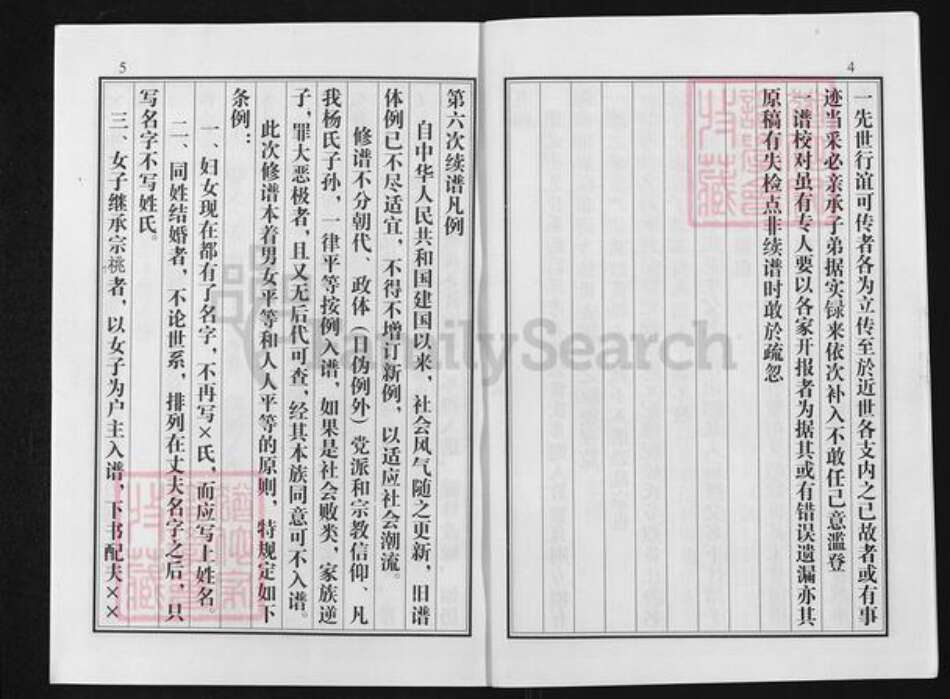 4
一先世行谊可传者各为立传至於近世各支内之已故者或有事
迹当采必亲承子弟据实录来依次补入不敢任己意滥登
一谱校对虽有专人要以各家开报者为据其或有错误遗漏亦其
原稿有失检点非续谱时敢於疏忽
5
第六次续谱凡例
自中华人民共和国建国以来，社会风气随之更新，旧谱
体例已不尽适宜，不得不增订新例，以适应社会潮流。
修谱不分朝代、政体（日伪例外）党派和宗教信仰、凡
我杨氏子孙，一律平等按例入谱，如果是社会败类，家族逆
子，罪大恶极者，且又无后代可查，经其本族同意可不入谱。
此次修谱本着男女平等和人人平等的原则，特规定如下
条例：
一、妇女现在都有了名字，不再写×氏，而应写上姓名。
二、同姓结婚者，不论世系，排列在丈夫名字之后，只
写名字不写姓氏。
三、女子继承宗桃者，以女子为户主入谱，下书配夫××
FamilySearch